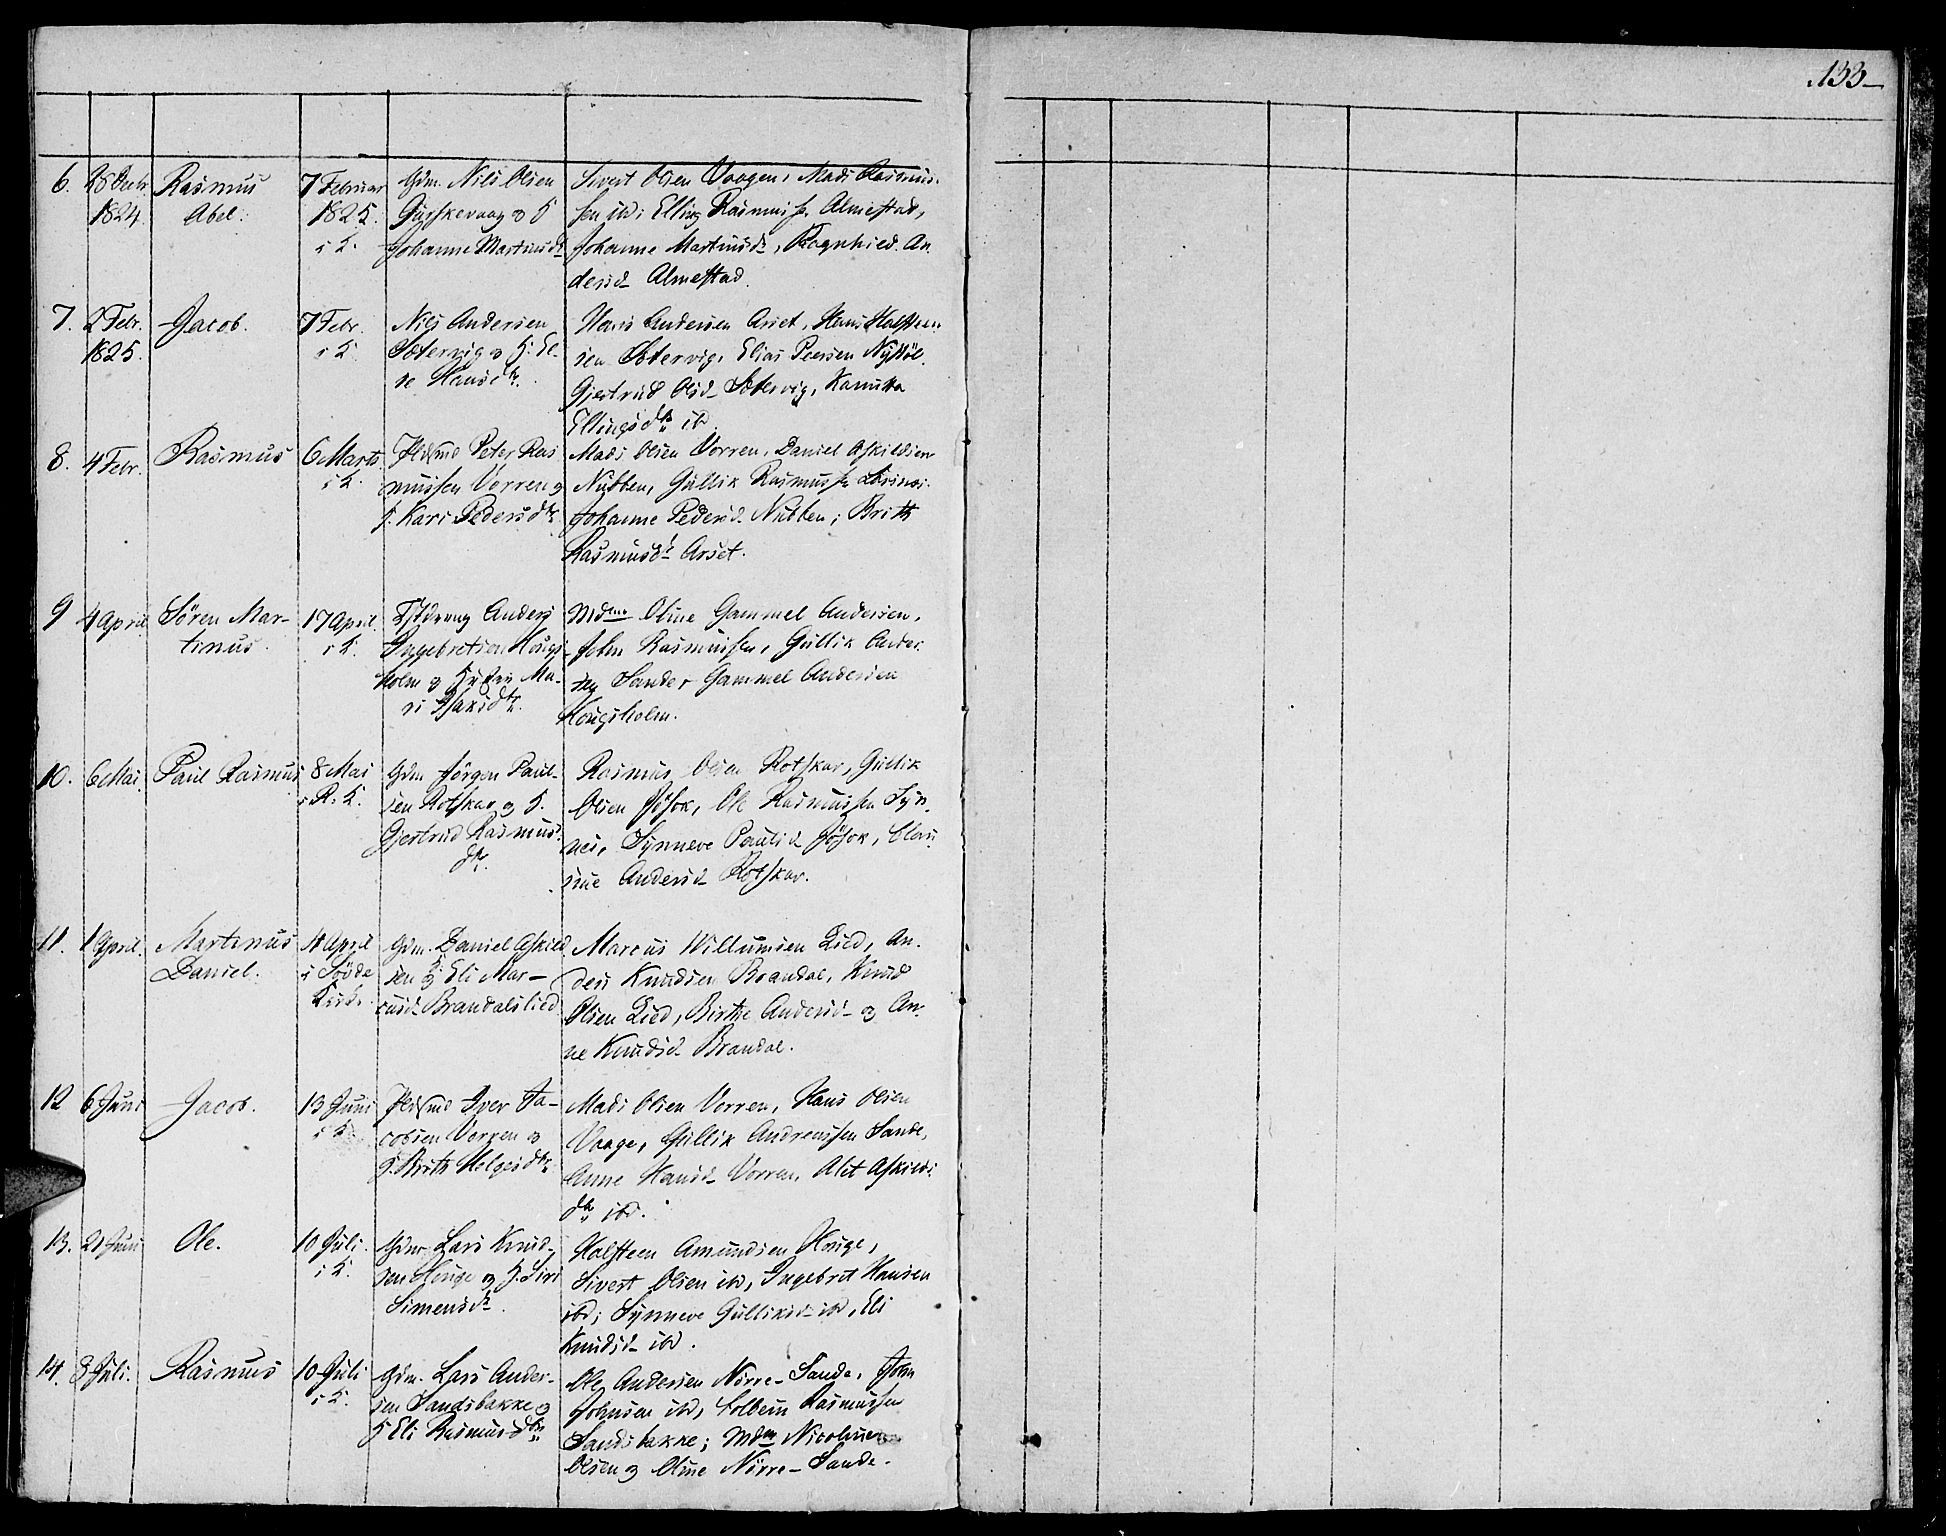 133
6. 28 Decbr 1824. Rasmus Abel. 7 Februar 1825. i K. Gdm. Nils Olsen
Gurskevaag og H
Johanne Martinsdr
Sivert Olsen Vaagen, Mads Rasmus-
sen ibd; Elling Rasmuss. Almestad,
Johanne Martinsdr, Ragnhild An-
dersd Almestad.
7. 2 Febr. 1825. Jacob. 7 Febr. i K. Nils Andersen
Sætervig og H. El-
se Hansdtr.
Hans Andersen Arset, Hans Halsteen-
sen Sætervig, Elias Peersen Nystøl
Gjertrud Olsd Sætervig, Kanutta
Ellingsdtr ibd
8. 4 Febr. Rasmus 6 Marts i K. Huusmd Peter Ras-
mussen Vorren og
H. Kari Pedersdtr.
Mads Olsen Vorren, Daniel Askildsen
Nubben, Gullik Rasmussen
Johanne Pedersd. Nubben; Brithe
Rasmusdr Arset.
9 4 April Søren Mar-
tinus. 17 April. i K. Anders
Ingebretsen Kongs-
holm og
Mdme Oline Gammel Andersen,
John Rasmussen, Gullik Ander-
sen Sande, Gammel Andersen
Kongsholm.
10. 6 Mai. Paul Rasmus 8 Mai i R. K. Gdm Jørgen Paul-
sen Rotskar og H.
Gjertrud Rasmus-
dtr.
Rasmus Olsen Rotskar, Gullik
Olsen Jøsok, Ole Rasmussen Syn-
nes, Synneve Paulsd Jøsok, Olau-
sine Andersd Rotskar.
11. 1 April. Martinus
Daniel. 4 April
i Syvde
Kirke. Gdm. Daniel Askild-
sen og H. Eli Mar-
cusd Brandalslied
Marcus Willumsen Lied, An-
ders Knudsen Brandal, Knud
Olsen Lied, Birthe Andersd og An-
ne Knudsd Brandal.
12 6 Juni Jacob. 13 Juni i K. Huusmd Iver Ja-
cobsen Vorren og
H. Brith Helgesdtr
Mads Olsen Vorren, Hans Olsen
Vaage, Gullik Andreassen Sande,
Anne Hansd Vorren, Alet Askilds-
dtr ibd.
13. 21 Juni Ole. 10 Juli. i K. Gdm. Lars Knud-
sen Houge og H. Siri
Simensdr.
Halsteen Amundsen Houge,
Sivert Olsen ibd, Ingebret Hansen
ibd; Synneve Gulliksd ibd, Eli
Knudsd ibd.
14. 8 Juli. Rasmus 10 Juli i K. Gdm. Lars Ander-
sen Sandsbakke og
H Eli Rasmusdtr
Ole Andersen Nørre-Sande, John
Johnsen ibd, Solbein Rasmussen
Sandsbakke; Mdm Nicoline
Olsen og Oline Nørre-Sande.